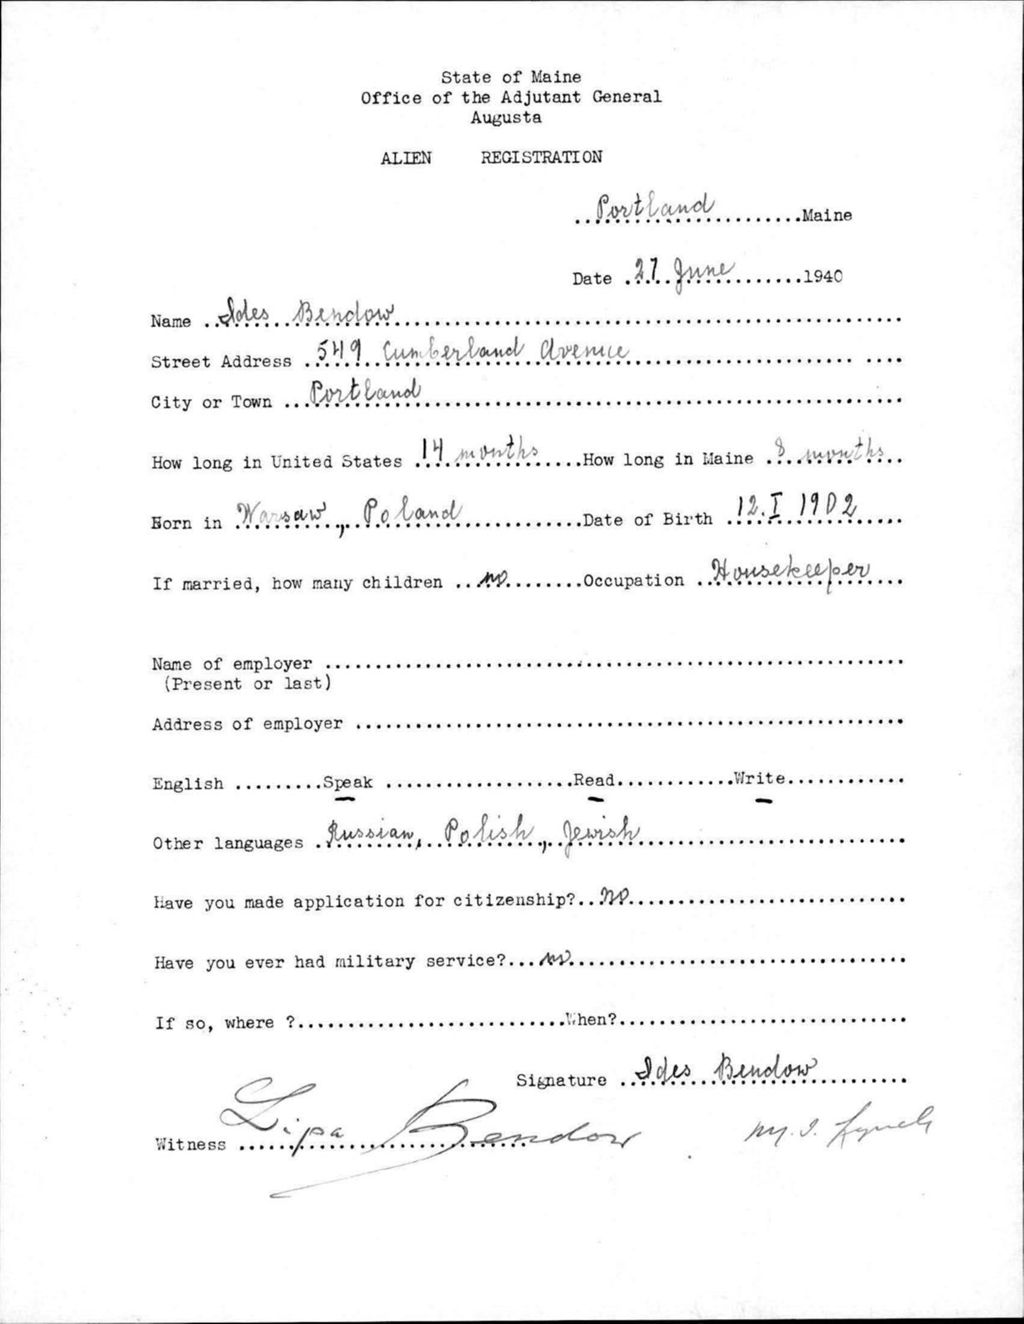 State of Maine
Office of the Adjutant General
Augusta
ALIEN REGISTRATION
..Portland.........Maine
Date .27. June.......1940
Name ..Ides..Bendow..................................................
Street Address .549. Cumberland Avenue........................ ....
City or Town ...Portland................................................
How long in United States 14 months.....How long in Maine .8..months..
Born in .Warsaw., Poland............Date of Birth .12.I 1902.....
If married, how many children ..no.........Occupation ..Housekeeper....
Name of employer ..........................................................
(Present or last)
Address of employer .......................................................
English .........Speak ...................Read............Write............
Other languages .Russian, Polish, Jewish...........................
Have you made application for citizenship?..No............................
Have you ever had military service?...no..................................
If so, where ?...........................When?.............................
Signature ..Ides..Bendow.........
Witness Lipa Bendow M. I. Lynch